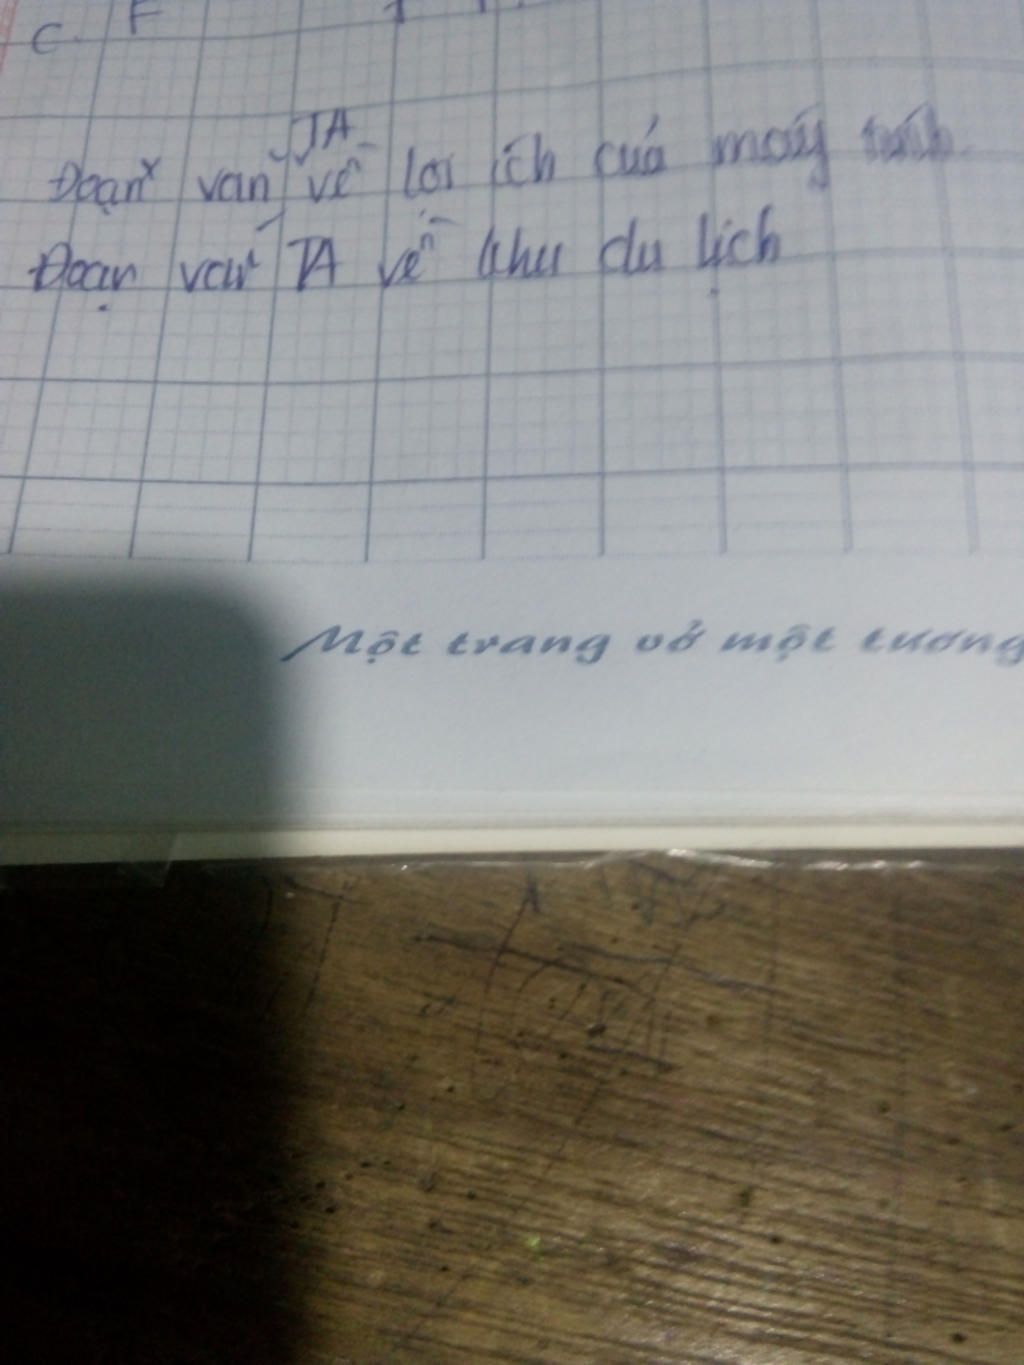 C. F
Đoạn văn TA về lợi ích của máy tính
Đoạn văn TA về khu du lịch
Một trang vở một tương